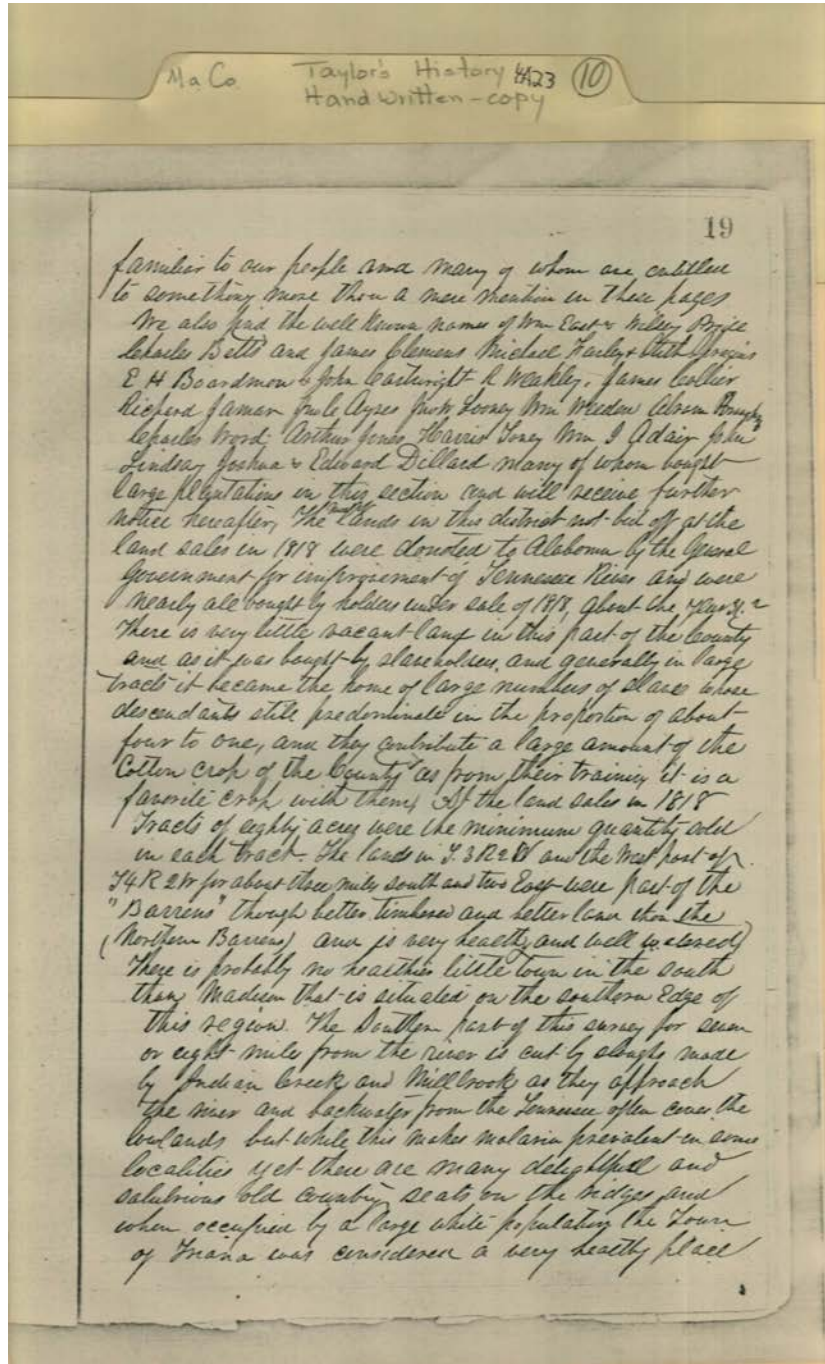 Ma Co Taylor's History 4A23 10
Handwritten - copy
19
familiar to our people and many of whom are entitled
to something more than a mere mention in these pages
We also find the well known names of Wm East &
Charles Betts and James Clemens Michael
E H Boardman & John Cartwright R Weakley, James Collier
Richard Jamar Ayres Looney Wm Weeden Abram
Charles Word, Arthur Jones, Harris Toney Wm I Adair John
Lindsay Joshua & Edward Dillard many of whom bought
large plantations in this section and will receive further
notice hereafter, The lands in this district not bid off at the
land sales in 1818 were donated to Alabama by the General
Government for improvement of Tennessee River and were
nearly all bought by holders under sale of 1818, about the year
There is very little vacant land in this part of the County
and as it was bought by slaveholders, and generally in large
tracts it became the home of large numbers of slaves whose
descendants still predominate in the proportion of about
four to one, and they contribute a large amount of the
Cotton crop of the County as from their training it is a
favorite crop with them, At the land sales in 1818
Tracts of eighty acres were the minimum quantity sold
in each tract. The lands in T. 3 R 2 W and the West part of
T4 R 2W for about three miles south and two East were part of the
"Barrens" though better timbered and better land than the
(Northern Barrens) and is very healthy and well watered
There is probably no healthier little town in the south
than Madison that is situated on the southern Edge of
this region. The Southern part of this survey for seven
or eight miles from the river is cut by sloughs made
by Indian Creek and Millbrook as they approach
the river and backwater from the Tennessee often cover the
lowlands but while this makes malaria prevalent in some
localities yet there are many delightfull and
salubrious old country seats on the ridges and
when occupied by a large white population the Town
of Triana was considered a very healthy place